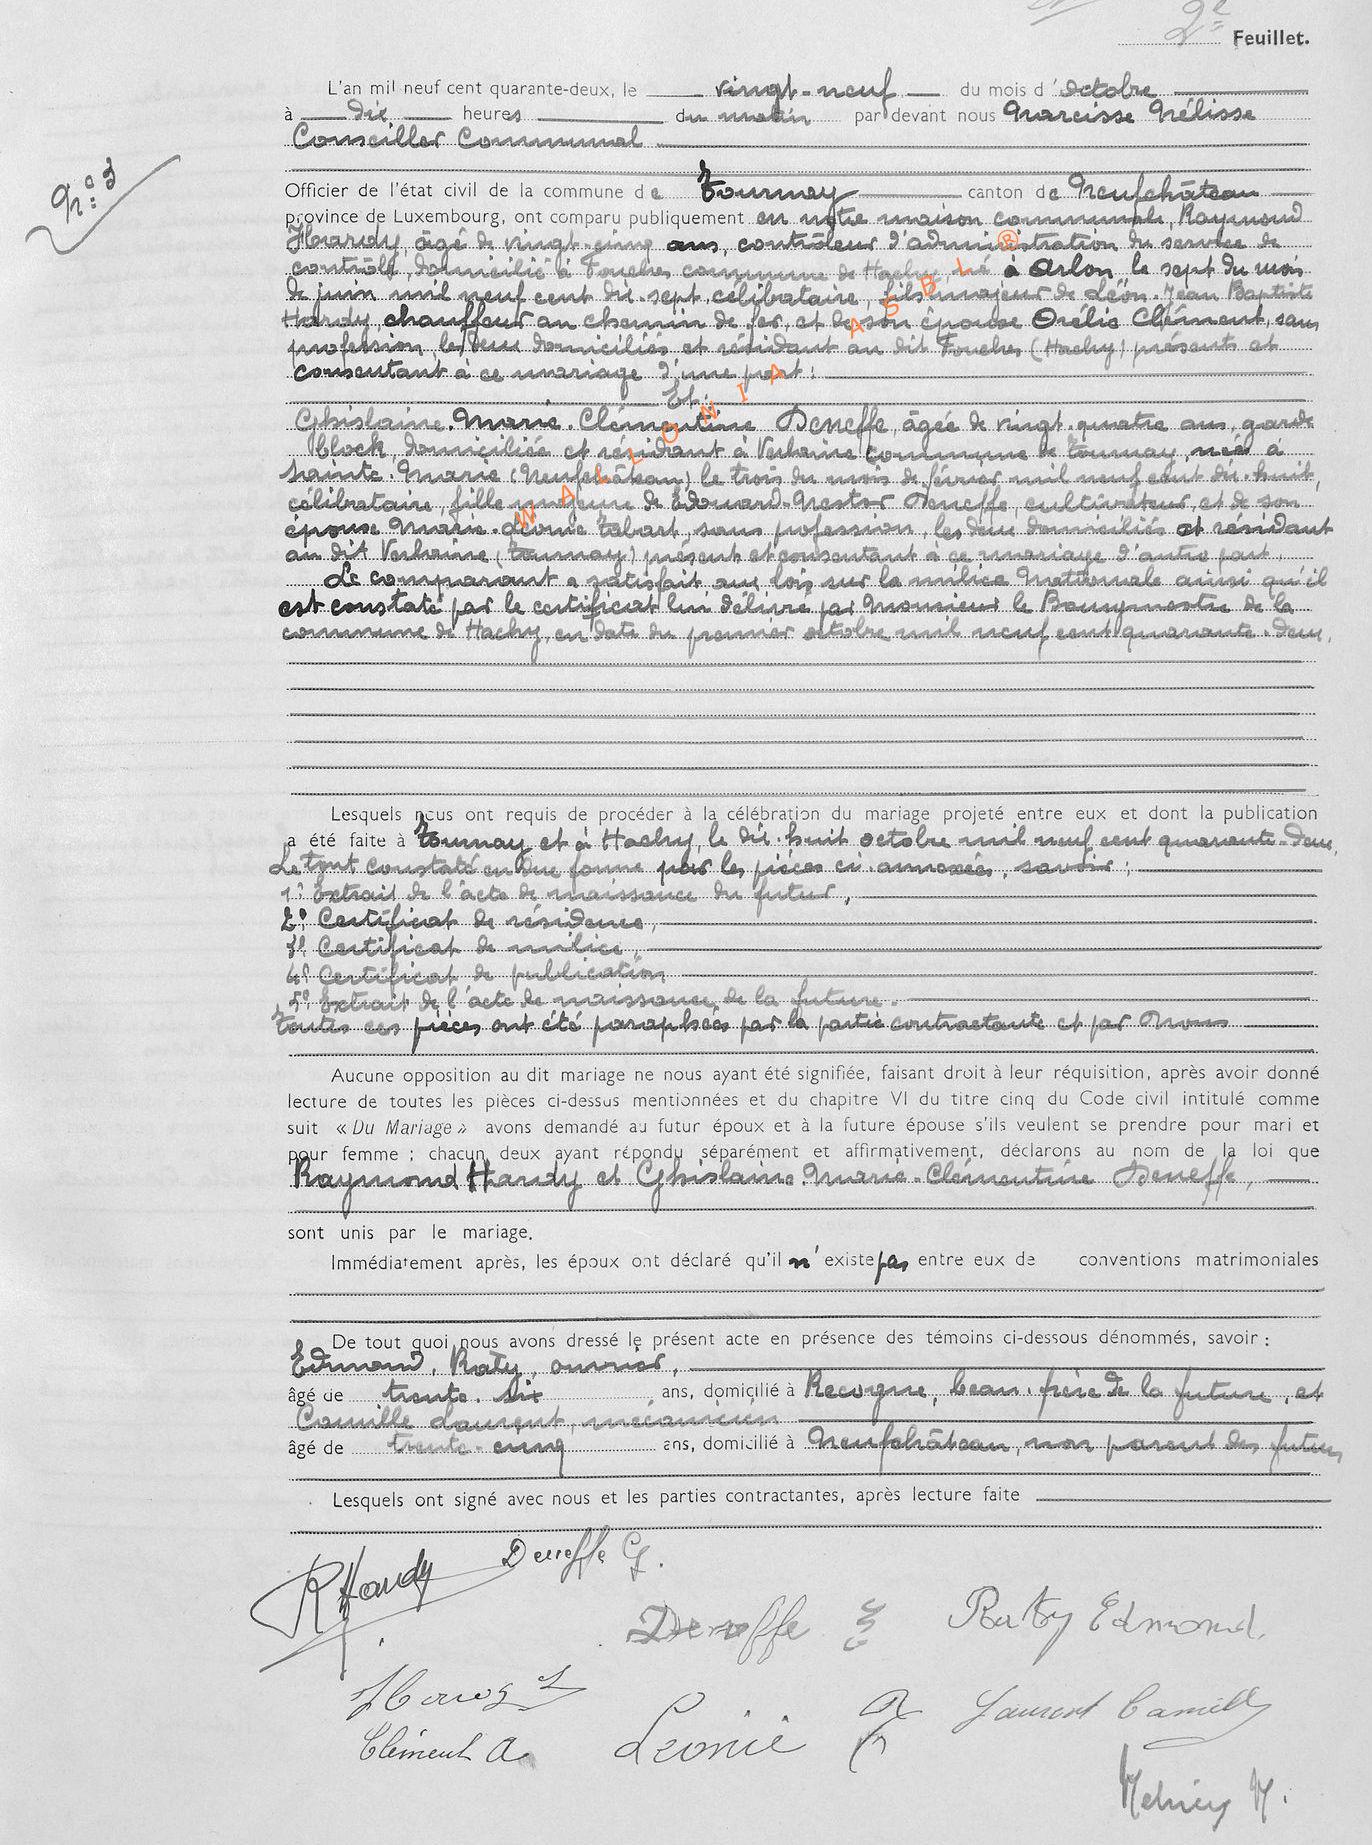 2e Feuillet.
L'an mil neuf cent quarante-deux, le vingt-neuf du mois d'octobre
à dix heures du matin par devant nous Narcisse Nélisse
Conseiller Communal
N° 3
Officier de l'état civil de la commune de Tournay canton de Neufchâteau
province de Luxembourg, ont comparu publiquement en notre maison communale, Raymond
Hardy, âgé de vingt-cinq ans, contrôleur d'administration du service de
contrôle, domicilié à Fouches commune de Hachy, né à Arlon le sept du mois
de juin mil neuf cent dix-sept, célibataire, fils majeur de Léon-Jean Baptiste
Hardy, chauffeur au chemin de fer, et de son épouse Orélie Clément, sans
profession, les deux domiciliés et résidant au dit Fouches (Hachy) présents et
consentant à ce mariage d'une part;
Et.
Ghislaine-Marie-Clémentine Deneffe, âgée de vingt-quatre ans, garde
block, domiciliée et résidant à Verlaine commune de Tournay, née à
Sainte-Marie (Neufchâteau) le trois du mois de février mil neuf cent dix-huit,
célibataire, fille majeure de Edouard-Nestor Deneffe, cultivateur, et de son
épouse Marie-Léonie Tabart, sans profession, les deux domiciliés et résidant
au dit Verlaine (Tournay) présent et consentant à ce mariage d'autre part.
Le comparant a satisfait aux lois sur la milice Nationale ainsi qu'il
est constaté par le certificat lui délivré par Monsieur le Bourgmestre de la
commune de Hachy, en date du premier octobre mil neuf cent quarante-deux.
WALLONIA ASBL ®
Lesquels nous ont requis de procéder à la célébration du mariage projeté entre eux et dont la publication
a été faite à Tournay et à Hachy, le dix-huit octobre mil neuf cent quarante-deux,
Le tout constaté en due forme par les pièces ci-annexées, savoir;
1° Extrait de l'acte de naissance du futur,
2° Certificat de résidence,
3° Certificat de milice,
4° Certificat de publication
5° Extrait de l'acte de naissance de la future.
Toutes ces pièces ont été paraphées par la partie contractante et par Nous
Aucune opposition au dit mariage ne nous ayant été signifiée, faisant droit à leur réquisition, après avoir donné
lecture de toutes les pièces ci-dessus mentionnées et du chapitre VI du titre cinq du Code civil intitulé comme
suit « Du Mariage » avons demandé au futur époux et à la future épouse s'ils veulent se prendre pour mari et
pour femme ; chacun deux ayant répondu séparément et affirmativement, déclarons au nom de la loi que
Raymond Hardy et Ghislaine-Marie-Clémentine Deneffe,
sont unis par le mariage.
Immédiatement après, les époux ont déclaré qu'il n'existe pas entre eux de conventions matrimoniales
De tout quoi nous avons dressé le présent acte en présence des témoins ci-dessous dénommés, savoir :
Edmond, Raty, ouvrier,
âgé de trente-six ans, domicilié à Recogne, beau-frère de la future, et
Camille Laurent, mécanicien
âgé de trente-cinq ans, domicilié à Neufchâteau, non parent des futurs
Lesquels ont signé avec nous et les parties contractantes, après lecture faite
R Hardy Deneffe G.
Deneffe Raty Edmond.
Hardy L
Clément A. Léonie Laurent Camille
Nelisse N.